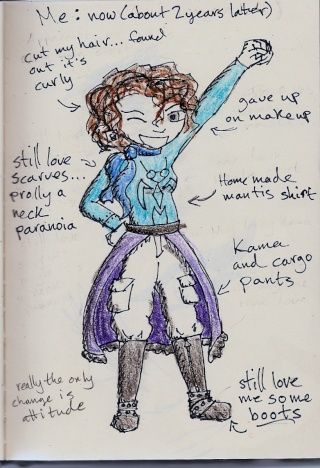 Me: now (about 2 years latter)
cut my hair... found
out it's
curly
gave up
on makeup
still love
scarves...
prolly a
neck
paranoia
Home made
mantis shirt
Kama
and cargo
pants
really the only
change is
attitude
still love
me some
boots